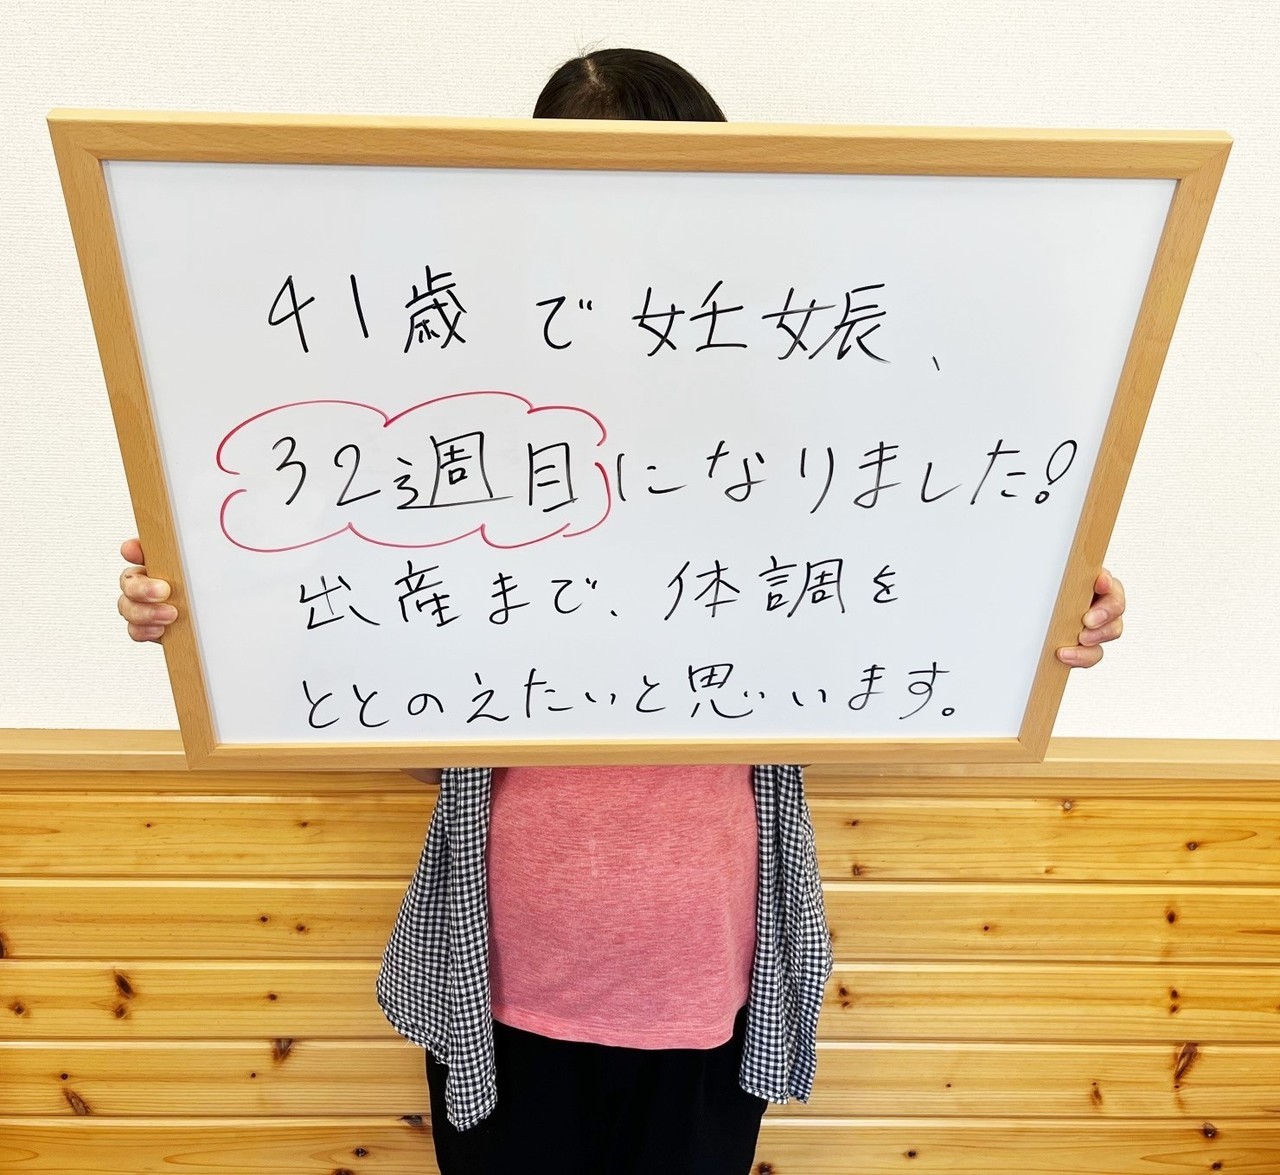 41歳で妊娠、
32週目になりました!
出産まで、体調を
ととのえたいと思います。